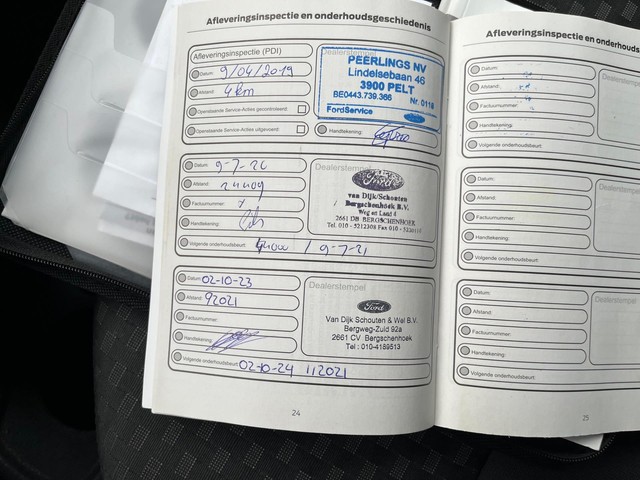 Afleveringsinspectie en onderhoudsgeschiedenis
Afleveringsinspectie (PDI)
Datum: 9/04/2019
Afstand: 4km
Openstaande Service-Acties gecontroleerd:
Openstaande Service-Acties uitgevoerd:
Handtekening:
Dealerstempel
PEERLINGS NV
Lindelsebaan 46
3900 PELT
BE0443.739.366
Nr. 0116
FordService
Ford
Datum: 9-7-20
Afstand:
Factuurnummer:
Handtekening:
Volgende onderhoudsbeurt: / 9-7-21
Dealerstempel
Ford
van Dijk/Schouten
Bergschenhoek B.V.
Weg en Land 4
2661 DB BERGSCHENHOEK
Tel. 010 - 5212308 Fax 010 -
Datum: 02-10-23
Afstand: 92021
Factuurnummer:
Handtekening:
Volgende onderhoudsbeurt: 02-10-24 112021
Dealerstempel
Ford
Van Dijk Schouten & Wel B.V.
Bergweg-Zuid 92a
2661 CV Bergschenhoek
Tel : 010-4189513
24
Afleveringsinspectie en onderhouds
Datum:
Afstand:
Factuurnummer:
Handtekening:
Volgende onderhoudsbeurt:
Dealerstem
Datum:
Afstand:
Factuurnummer:
Handtekening:
Volgende onderhoudsbeurt:
Dealerste
Datum:
Afstand:
Factuurnummer:
Handtekening:
Volgende onderhoudsbeurt:
Dealerst
25